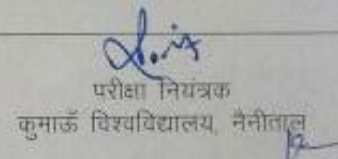 परीक्षा नियंत्रक
कुमाऊँ विश्वविद्यालय, नैनीताल